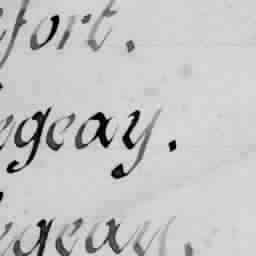 fort.
egeay.
egeay.